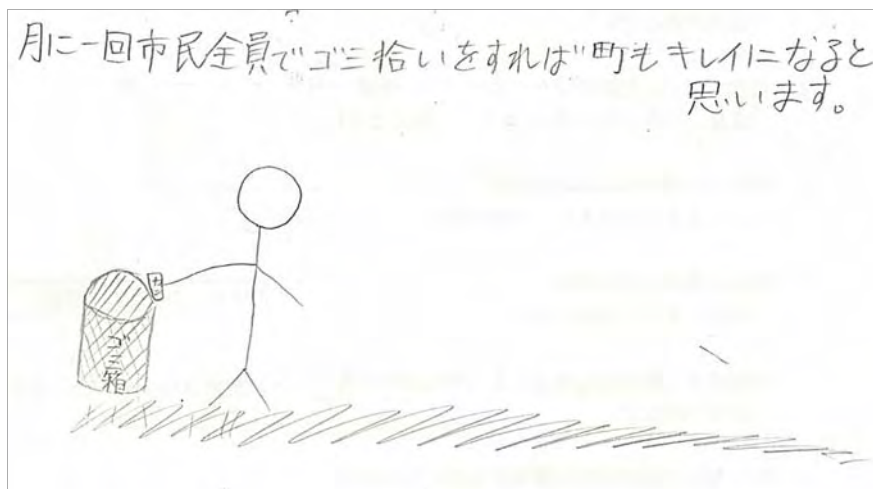 月に一回市民全員でゴミ拾いをすれば町もキレイになると
思います。
カン
ゴミ箱